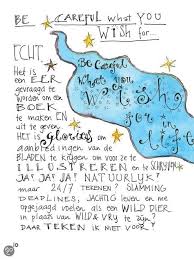 BE CAREFUL what YOU
WISH for...
ECHT.
Het is
een EER
gevraagd te
worden om een
BOEK
te maken EN
uit te geven.
Het is GLORIEUS om
aanbiedingen van de
BLADEN te krijgen om voor ze te
ILLUSTREREN en te SCHRIJVEN
JA! JA! JA! NATUURLIJK!
maar 24/7 TEKENEN? SLAMMING
DEADLINES, JACHTIG leven en me
opgejaagd voelen als een WILD DIER
in plaats van WILD & VRY te zijn?
DAAR TEKEN IK NIET VOOR!
Be Careful
what you
Wish
for